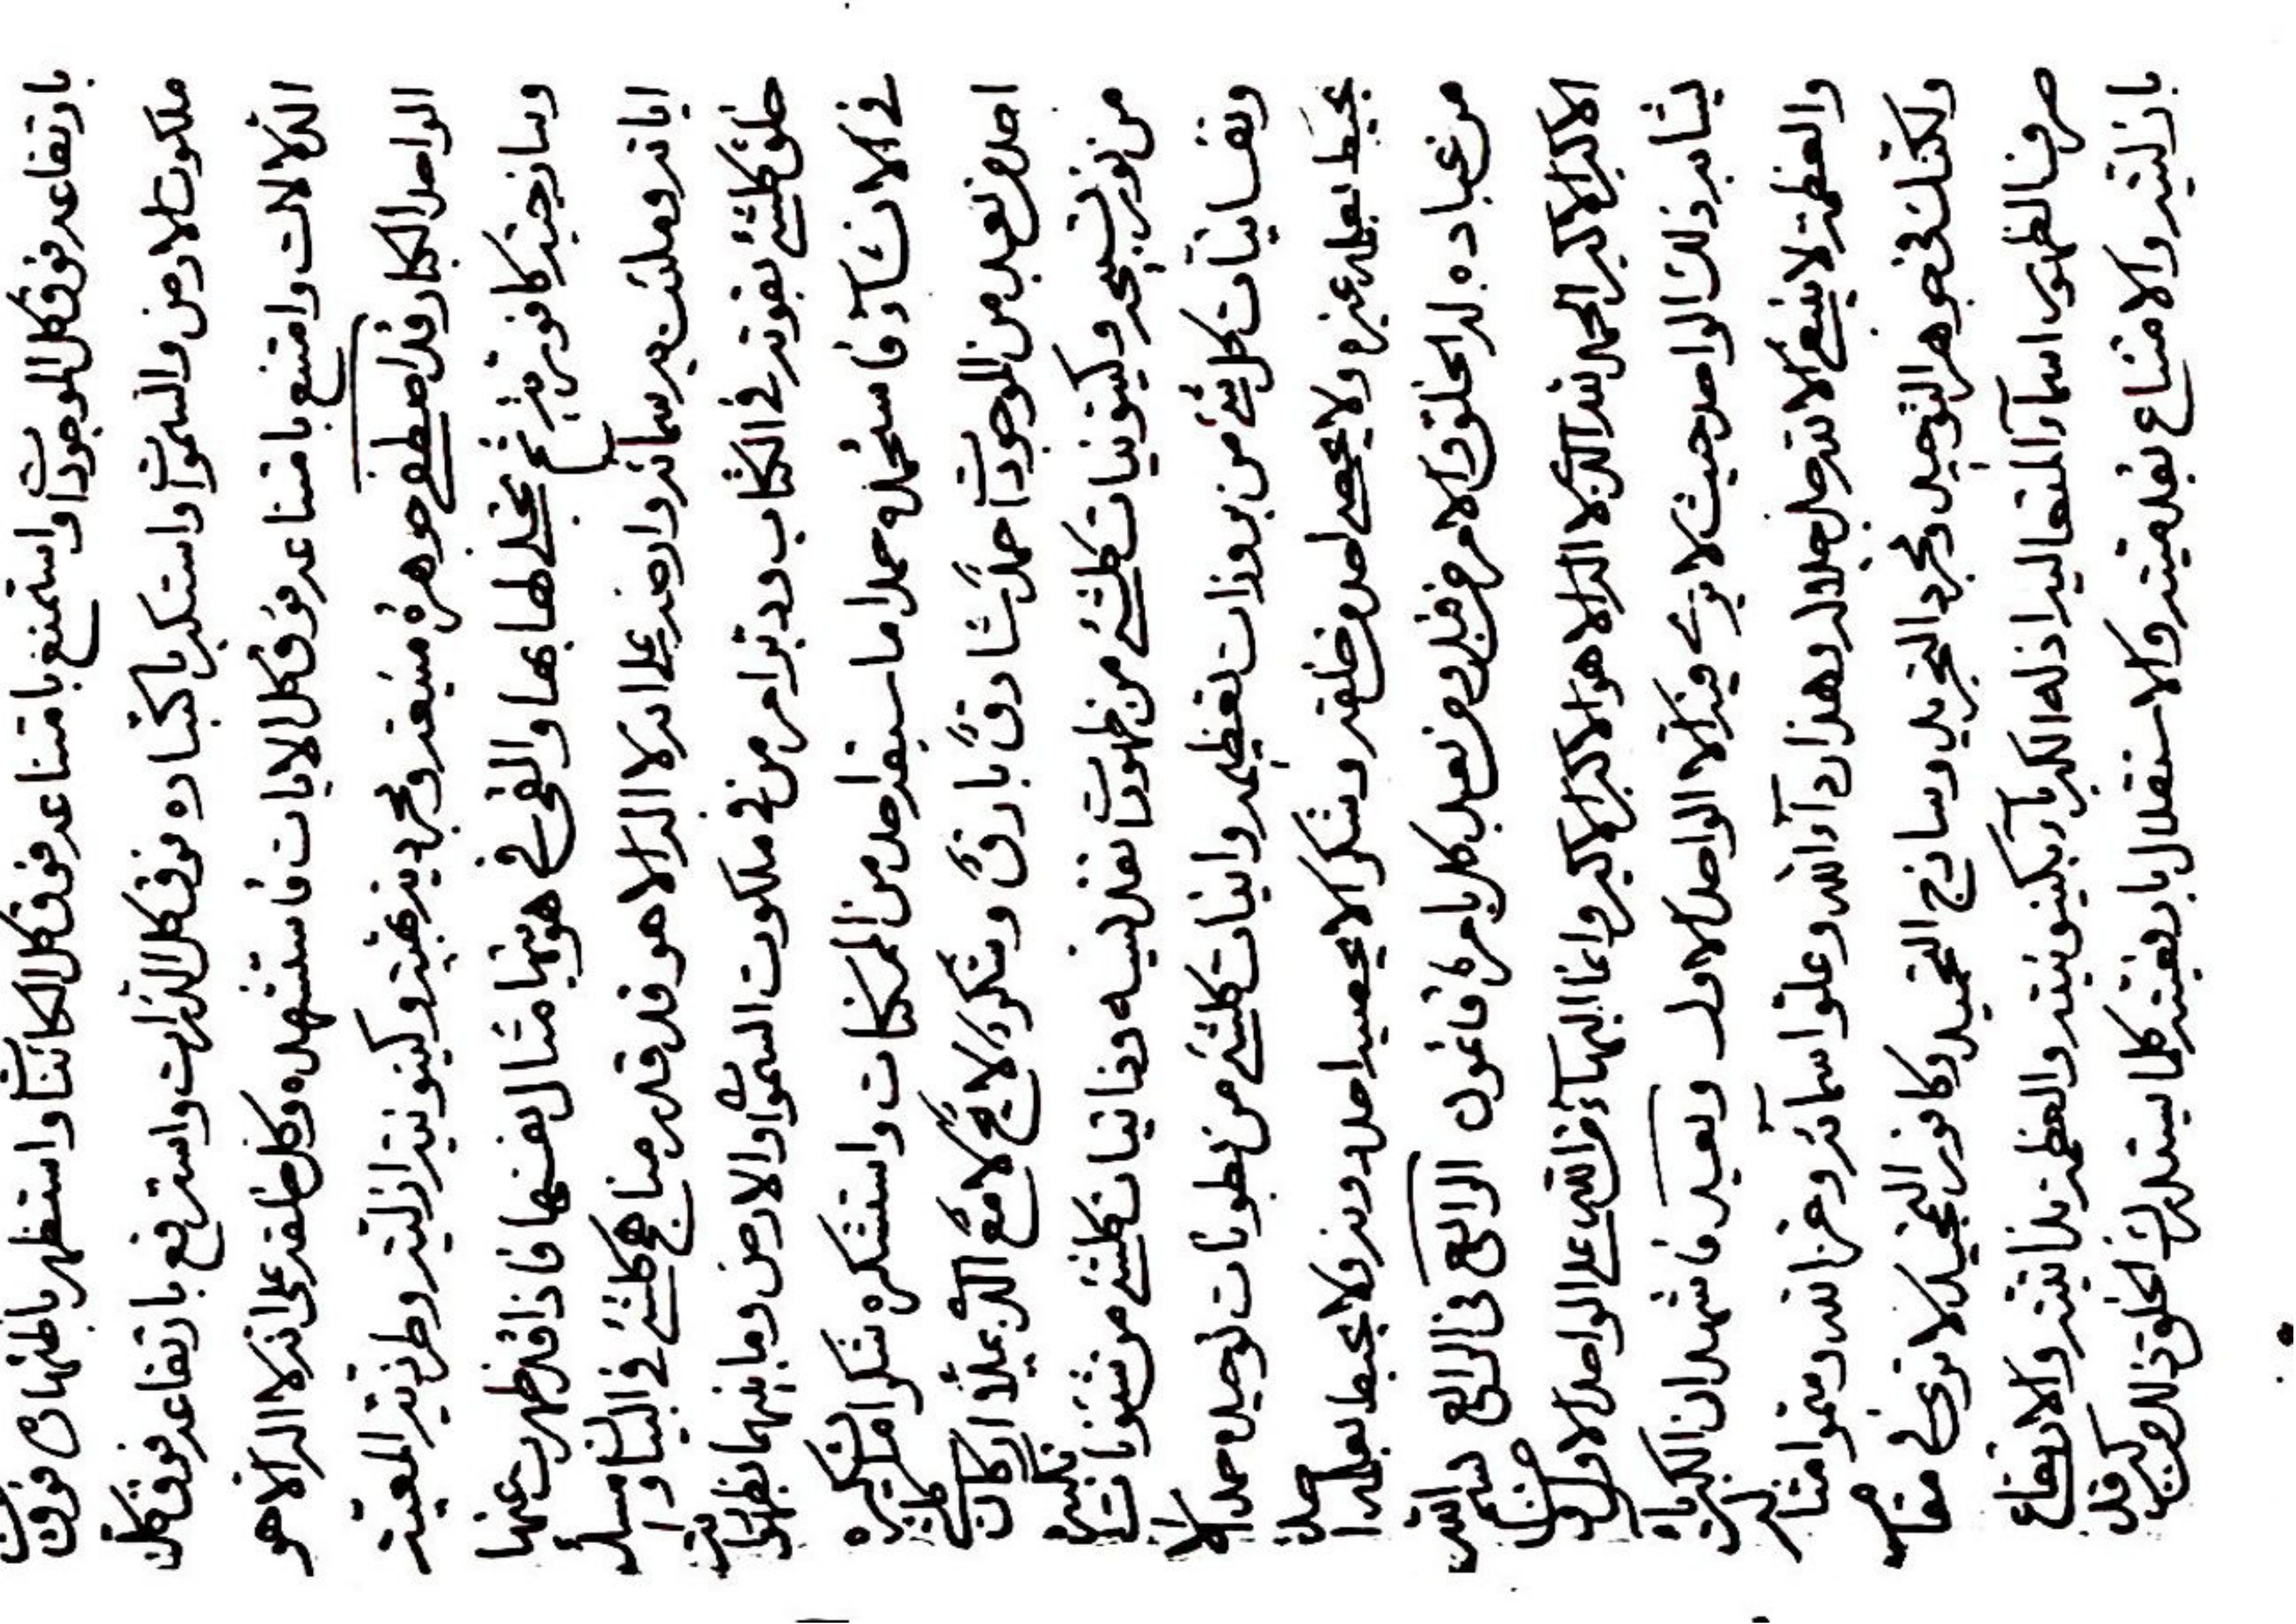 بارتفاعه فوق كل الموجودات واستمنع بامتناعه فوق كل الكائنات واستظهر باظهاره فوق
ملكوت الارض والسموات واستكبر باكتباره فوق كل الذرات واسترفع بارتفاعه فوق كل
الدلالات وامتنع بامتناعه فوق كل الايات فاستشهده وكل خلقه على انه لا اله الا هو
الواحد البكار قد اصطفى جوهرة منيعة ومجردية بهية وكينونية ازلية وطرزية المعية
وساذجية كافورية ثم تجلى لها بها والقى في هويتها مثال نفسها فاذا قد ظهرت عنها
اياته وملئت به سمائه وارضه على انه لا اله الا هو قد قدر مناهج كلشئ في البيان
خلق كلشئ بقوته في الكتاب ودبر امر من في ملكوت السموات والارض وما بينهما بظهوراته
في الانشاء فاستحمده حمدا ما سبقه احد من الممكنات واستشكره شكرا
احد من بعد من الموجودات حمدا شارقا بارقا وشكرا لائحا لامعا الذي يملأ اركان كلشئ
من نور تسبيحه وكينونيات كلشئ من ظهورات تقديسه وذاتيات كلشئ من شئونات تكبيره
ونفسانيات كل شئ من بروزات تعظيمه وانيات كلشئ من بطونات توحيده حمدا لا
يحيط بعلمه غيره ولا يحصه احد من خلقه وشكرا لا يحصيه احد دونه ولا يحيط بعلمه احد
من عباده له الخلق والامر من قبل ومن بعد كل بامره قائمون الرابع في الرابع بسم الله
الاكبر الاكبر الحمد لله الذي لا اله الا هو الاكبر الاكبر وانما البهاء من الله على الواحد الاول ومن
يشابه ذلك الواحد حيث لا يرى فيه الا الواحد الاول وبعد فاشهد ان الكبرياء
والعظمة لا ينبغي الا لله جل جلاله وهذا رداء الله وعلو اسمائه وعز الله وسمو امثاله
ولكنك في جوهر التوحيد ومجرد التجريد وساذج التحميد وكافور التمجيد لا ترى في مقام
صرف الظهور اسماء المتعاليه اذ له الكبرياء بكينونيته والعظمة بذاتيته والارتفاع
بازليته والامتناع بقدميته والاستقلال برفعيته كلما يستدرك الخلق ذلك قد